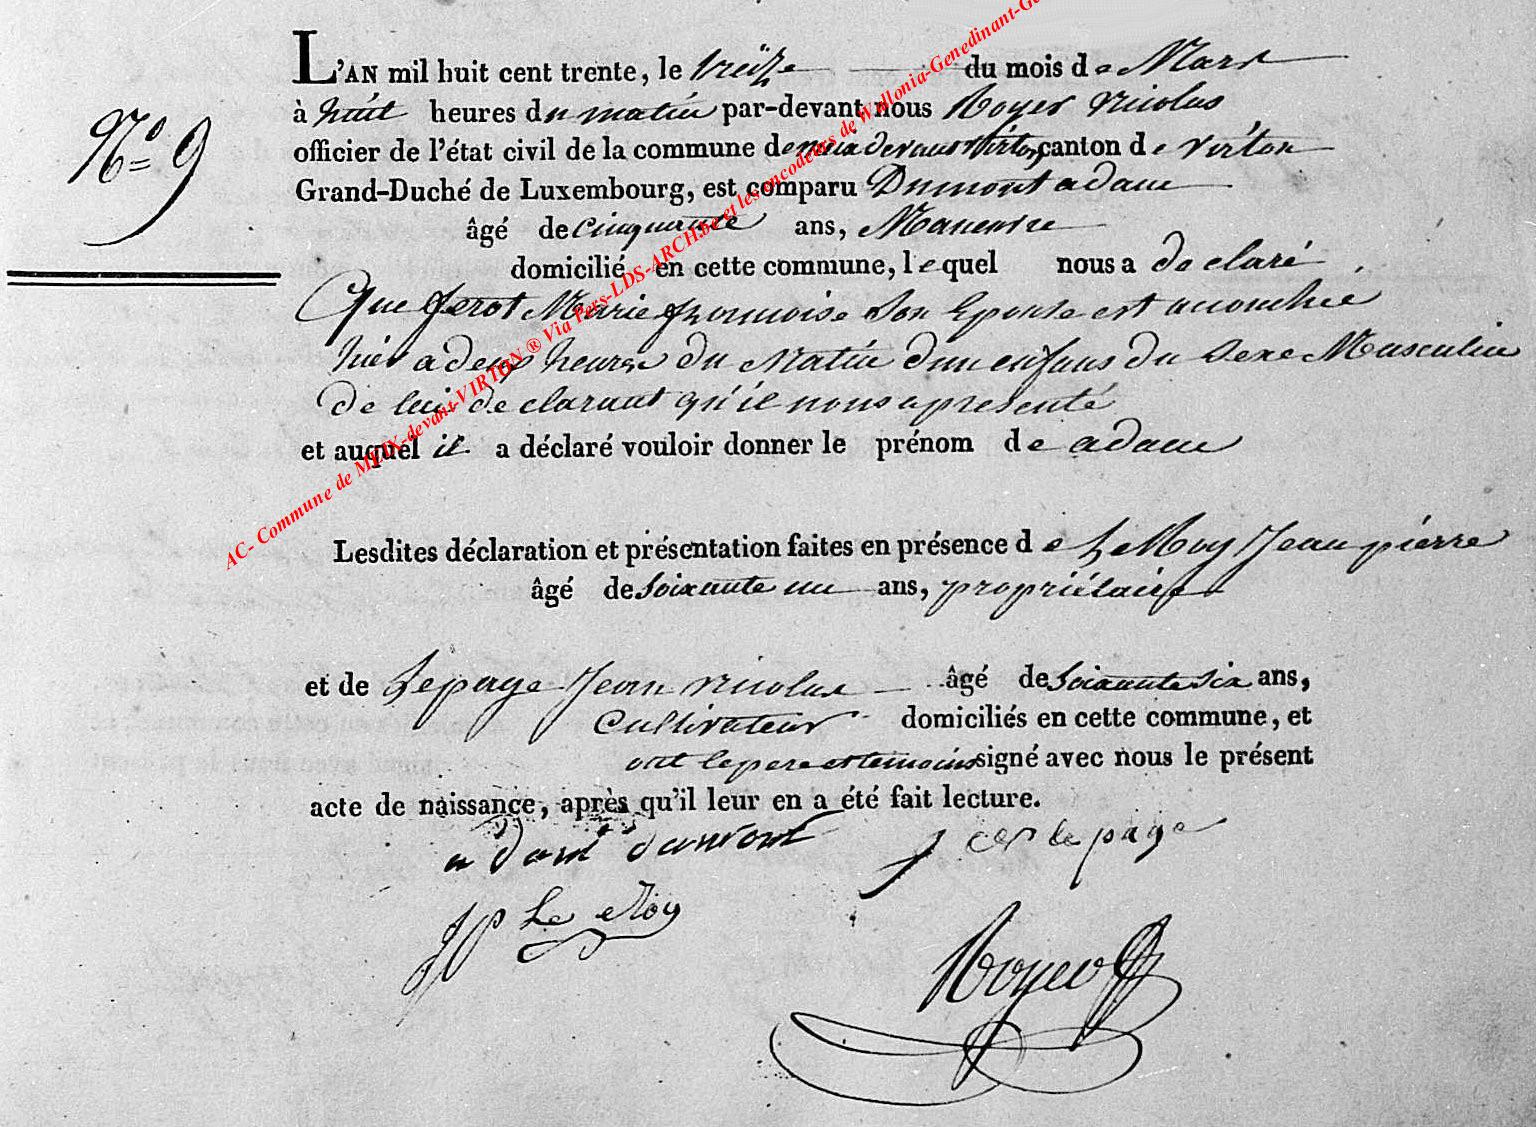 L'AN mil huit cent trente, le treize du mois de Mars
à huit heures du matin par-devant nous Royer Nicolas
officier de l'état civil de la commune de meix devant virton, canton de virton
Grand-Duché de Luxembourg, est comparu Dumont adam
N° 9
âgé de cinquante ans, Manouvre
domicilié en cette commune, lequel nous a declaré
Que ferot Marie francoise Son Epouse est accouchée
hier a deux heures du Matin dun enfans du Sexe Masculin
de lui declarant qu'il nous a presenté
et auquel il a déclaré vouloir donner le prénom de adam
Lesdites déclaration et présentation faites en présence de Le Roy Jean pierre
âgé de Soixante un ans, propriétaire
et de Lepage Jean nicolas âgé de Soixante Six ans,
Cultivateur domiciliés en cette commune, et
ont le pere et temoins signé avec nous le présent
acte de naissance, après qu'il leur en a été fait lecture.
adam dumont
lepage
JP Le Roy
Royer
AC- Commune de MEIX-devant-VIRTON ® Via Pers-LDS-ARCH.be et les encodeurs de Wallonia-Genedinant-Ge